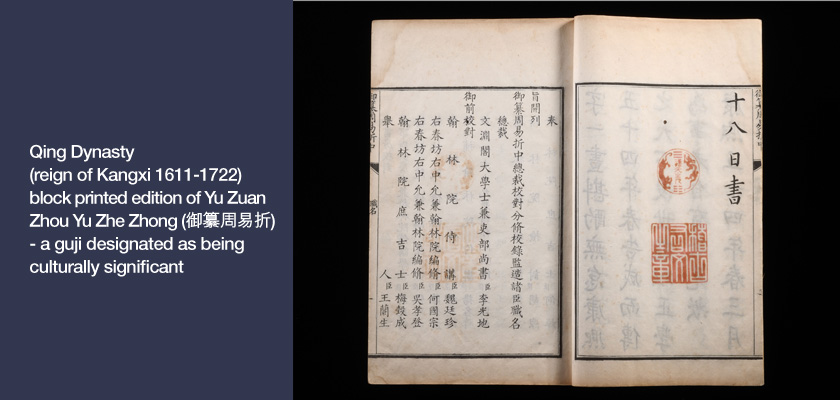 Qing Dynasty
(reign of Kangxi 1611-1722)
block printed edition of Yu Zuan
Zhou Yu Zhe Zhong (御纂周易折)
- a guji designated as being
culturally significant
十八日書
奉
旨開列
御纂周易折中總裁校對分脩校錄監造諸臣職名
總裁
文淵閣大學士兼吏部尚書臣李光地
御前校對
翰林院侍講臣魏廷珍
右春坊右中允兼翰林院編脩臣何國宗
右春坊右中允兼翰林院編脩臣吳孝登
翰林院庶吉士臣梅瑴成
舉人臣王蘭生
御纂周易折中 職名